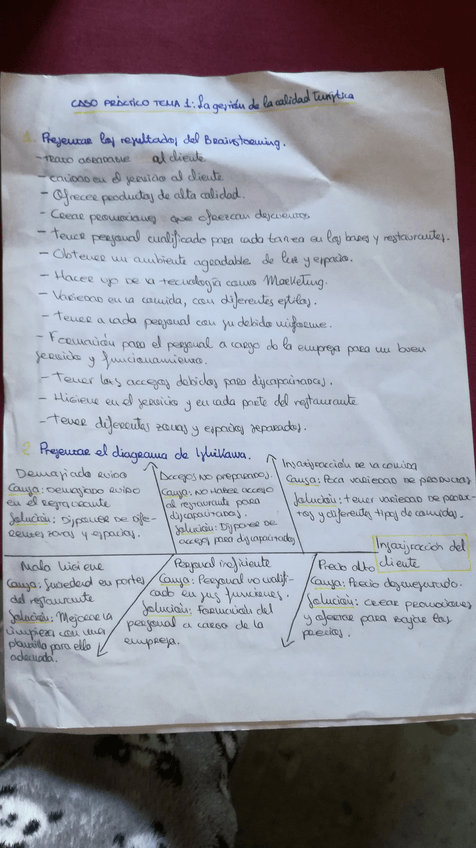 CASO PRÁCTICO TEMA 1: La gestión de la calidad turística
1. Presentar los resultados del Brainstorming.
- Trato agradable al cliente
- calidad en el servicio al cliente
- Ofrecer productos de alta calidad.
- Crear promociones que ofrezcan descuentos
- Tener personal cualificado para cada tarea en los bares y restaurantes.
- Obtener un ambiente agradable de luz y espacio.
- Hacer uso de la tecnología como Marketing.
- Variedad en la comida, con diferentes estilos.
- Tener a cada personal con su debido uniforme.
- Formación para el personal a cargo de la empresa para un buen
servicio y funcionamiento.
- Tener los accesos debidos para discapacitados.
- Higiene en el servicio y en cada parte del restaurante
- Tener diferentes zonas y espacios separados.
2. Presentar el diagrama de Ishikawa.
Demasiado ruido
Causa: Demasiado ruido
en el restaurante
Solución: Disponer de dife-
rentes zonas y espacios.
Accesos no preparados.
Causa: No haber acceso
al restaurante para
discapacitados.
Solución: Disponer de
accesos para discapacitados
Insatisfacción de la comida
Causa: Poca variedad de productos
Solución: tener variedad de produc-
tos y diferentes tipos de comidas.
Insatisfacción del
cliente
Mala higiene
Causa: Suciedad en partes
del restaurante
Solución: Mejorar la
limpieza con una
plantilla para ello
adecuada.
Personal ineficiente
Causa: Personal no cualifi-
cado en sus funciones.
Solución: Formación del
personal a cargo de la
empresa.
Precio alto
Causa: Precio desmesurado.
Solución: crear promociones
y ofertas para bajar los
precios.